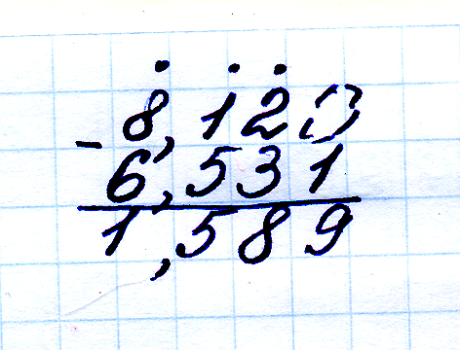 8,120
- 6,531
1,589